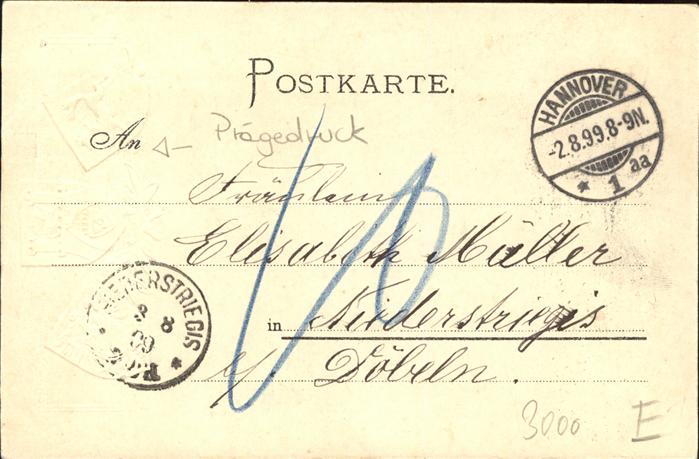 POSTKARTE.
HANNOVER
-2.8.99.8-9N.
* 1 aa
An Prägedruck
Fräulein
Elisabeth Müller
in Niederstriegis
b/ Döbeln.
10
NIEDERSTRIEGIS
3 8
99
3000 E